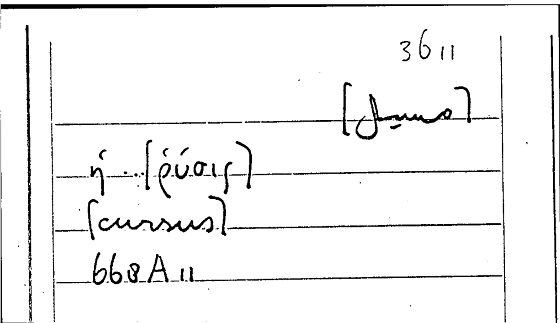 36 11
ἡ .. [ῥύσις]
[cursus]
668 A 11